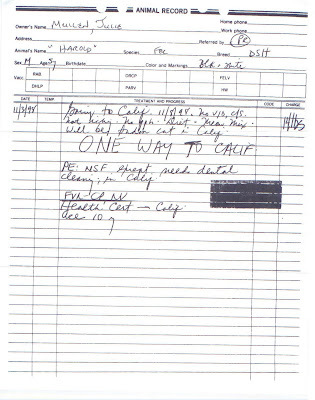 ANIMAL RECORD
Owner's Name Mullen, Julie Home phone
Work phone
Address Referred by
Animal's Name "HAROLD" Species Fec Breed DSH
Sex M Age 5y Birthdate Color and Markings Blk + white
Vacc: RAB DRCP FELV
DHLP PARV HW
DATE TEMP. TREATMENT AND PROGRESS CODE CHARGE
11/3/98 Going to Calif 11/8/98. No v/d, c/s.
Diet - Meow Mix.
will be indoor cat in Calif.
ONE WAY TO CALIF
PE: NSF except needs dental
cleaning; in Calif
FVR-CP, RV
Health Cert → Calif
Ace 10